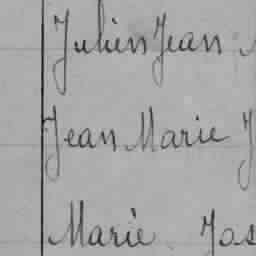 Julien Jean
Jean Marie J
Marie Jos